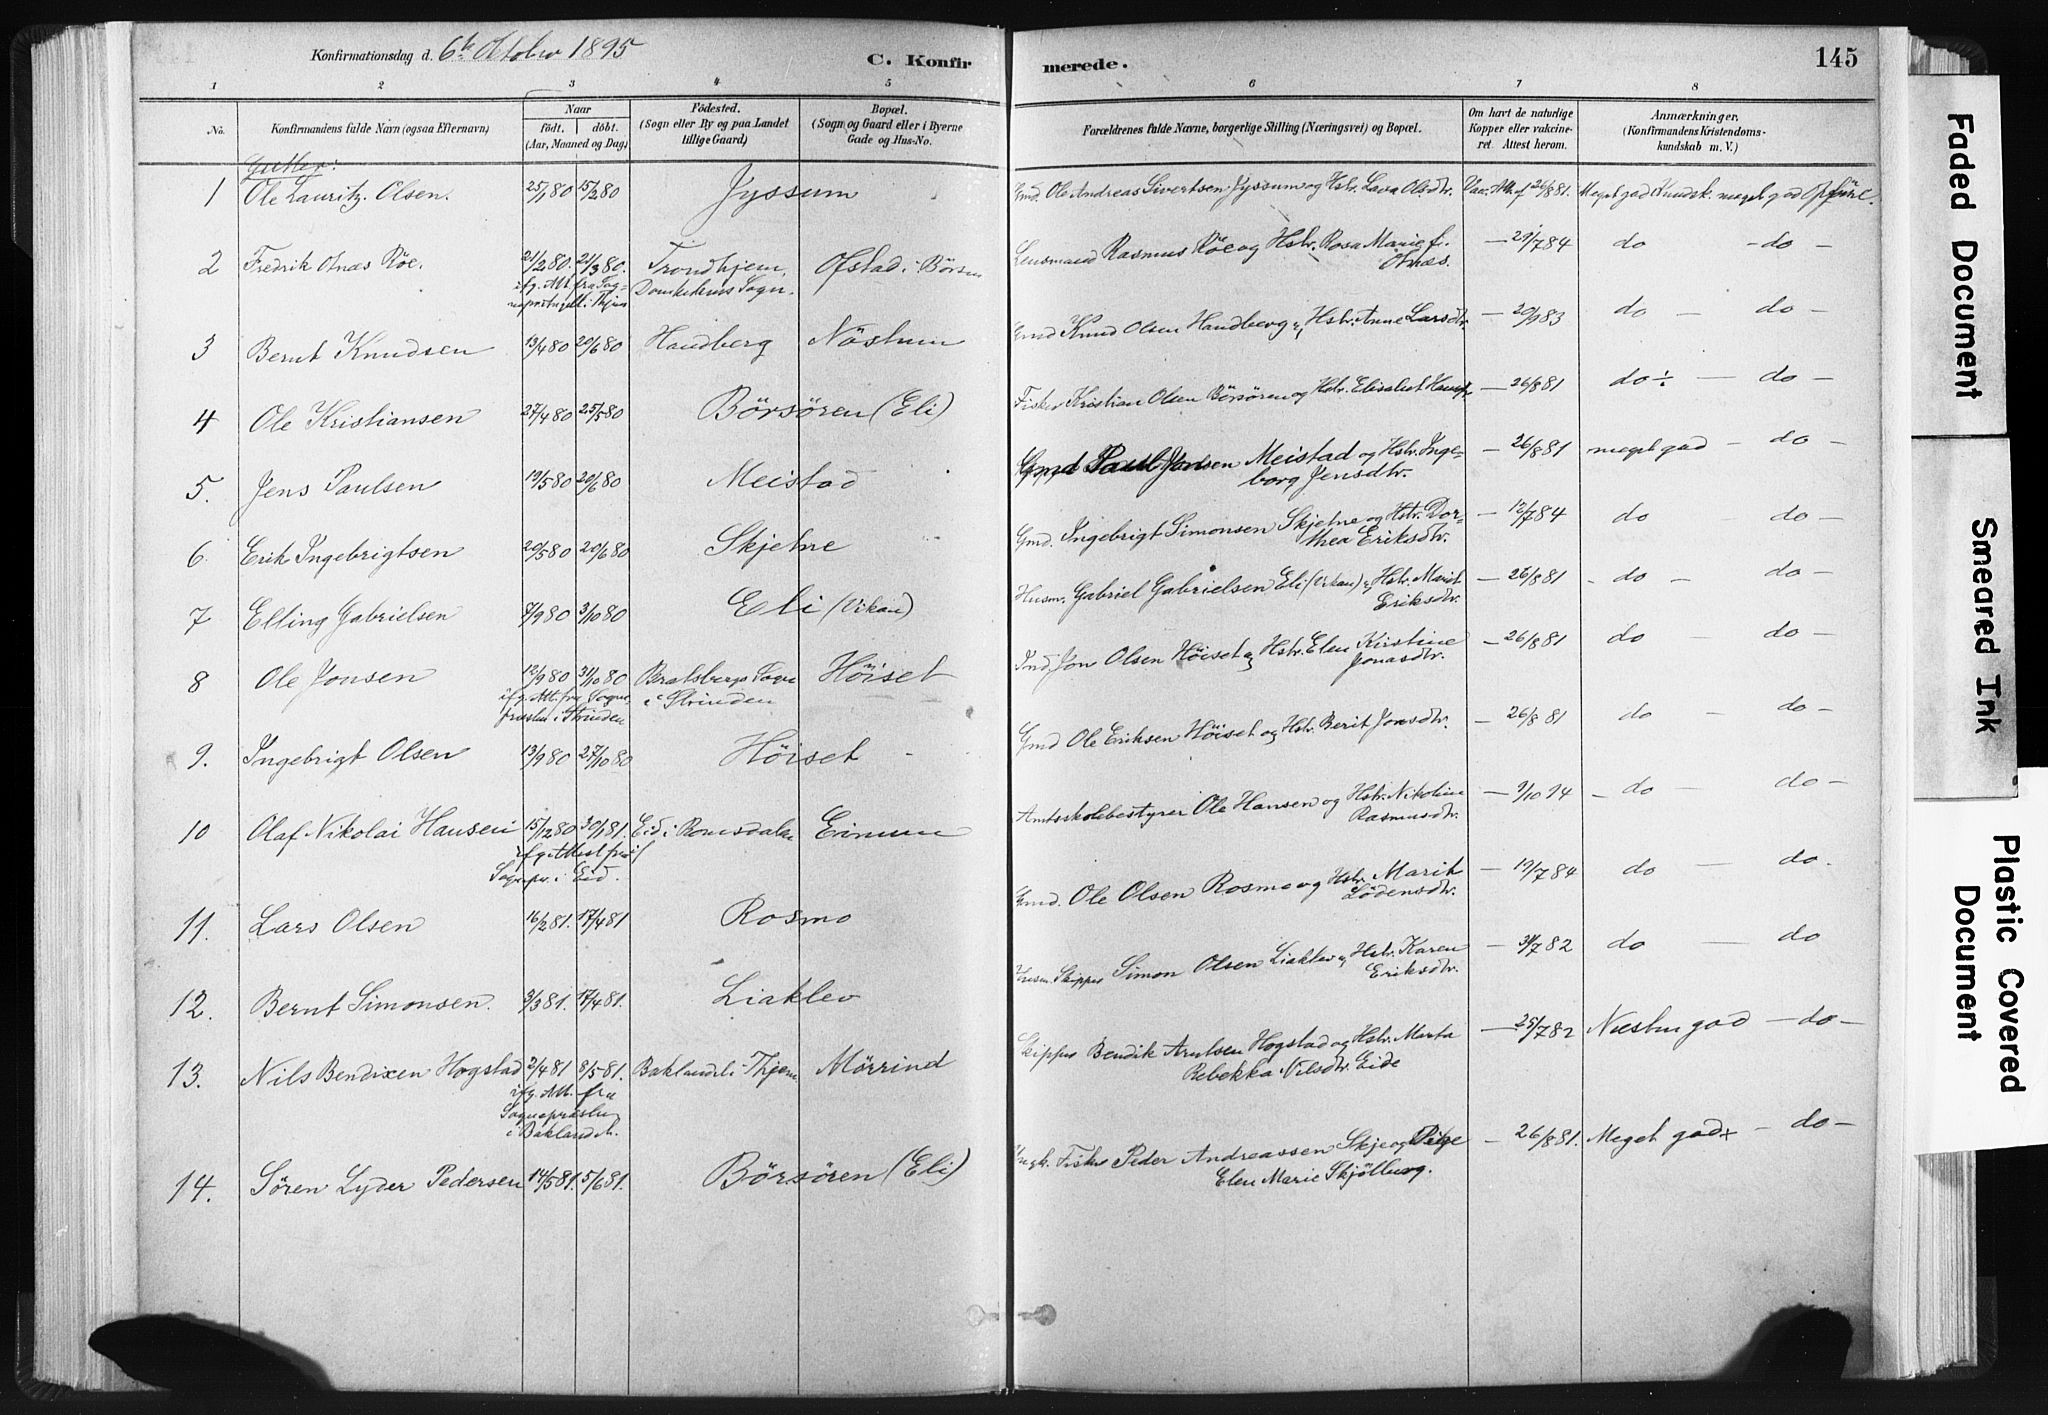 Konfirmationsdag d. 6te Oktober 1895 C. Konfirmerede. 145
1 2 3 4 5 6 7 8
No. Konfirmandens fulde Navn (ogsaa Efternavn) Naar födt. döbt. (Aar, Maaned og Dag) Födested. (Sogn eller By og paa Landet tillige Gaard) Bopæl. (Sogn og Gaard eller i Byerne Gade og Hus-No. Forældrenes fulde Navne, borgerlige Stilling (Næringsvei) og Bopæl. Om havt de naturlige Kopper eller vakcineret. Attest herom. Anmærkninger. (Konfirmandens Kristendomskundskab m. V.)
Gutter:
1 Ole Lauritz Olsen. 25/1 80 15/2 80 Jyssum Gmd. Ole Andreas Sivertsen Jyssum og Hstr. Lava Olsdtr. Vac. Att. af 26/8 81. Meget god Kundsk. meget god Opförsel.
2 Fredrik Otnæs Röe. 21/2 80. 21/3 80. Trondhjem, Domkirkens Sogn. Ofstad i Börsen Lensmand Rasmus Röe og Hstr. Rosa Marie f. Otnæs. — 29/7 84 do - do -
ifg. Att. fra Sogneprestugell i Thjem
3 Bernt Knudsen 13/4 80 20/6 80 Handberg Nöstum Gmd Knud Olsen Handberg og Hstr. Anne Larsdtr — 20/9 83 do — do —
4 Ole Kristiansen 27/4 80 25/5 80 Börsören (Eli) Fisker Kristian Olsen Börsören og Hstr. Elisabet Hansdtr — 26/8 81 do ÷ — do —
5. Jens Paulsen 19/5 80 20/6 80 Meistad Gmd Paul Jonsen Meistad og Hstr. Ingeborg Jensdtr. — 26/8 81 meget god — do —
6. Erik Ingebrigtsen 20/5 80 20/6 80 Skjetne Gmd. Ingebrigt Simonsen Skjetne og Hstr. Dorthea Eriksdtr. — 12/7 84 do — do —
7 Elling Gabrielsen 7/9 80 3/10 80 Eli (Vikan) Husm. Gabriel Gabrielsen Eli (Vikan) og Hstr. Marit Eriksdtr. — 26/8 81 - do — do —
8 Ole Jonsen 12/9 80 31/10 80 Bratsbergs Sogn i Strinden Höiset Ind. Jon Olsen Höiset og Hstr. Elen Kirstine Jonasdtr. — 26/8 81 do — do —
ifg. Att. fra Sognepræsten i Strinden
9. Ingebrigt Olsen 13/9 80 27/10 80 Höiset - Gmd Ole Eriksen Höiset og Hstr. Berit Jonsdtr. — 26/8 81 do — do —
10 Olaf Nikolai Hansen 15/12 80 30/1 81. Eid i Romsdalen Erimun Amtsskolebestyrer Ole Hansen og Hstr. Nikoline Rasmusdtr. — 9/10 94 — do — do —
ifg. Attest fra Sognepr. i Eid.
11. Lars Olsen 16/2 81. 17/4 81 Rosmo Gmd. Ole Olsen Rosmo og Hstr. Marit Lödensdtr. — 19/7 84 do — do.
12. Bernt Simonsen. 3/3 81. 17/4 81. Liaklev Skipper Simon Olsen Liaklev og Hstr. Karen Eriksdtr. — 31/7 82 do — do
13. Nils Bendixen Hogstad 2/4 81 8/5 81. Baklandet i Thjem Mörrind Skipper Bendik Arntsen Hogstad og Hstr. Marta Rebekka Nilsdtr. Eide — 25/7 82 Næsten god — do —
ifg. Att. fra Sognepræsten i Baklandet.
14. Sören Lyder Pedersen 14/5 81. 5/6 81. Börsören (Eli) Ungk. Fisker Peder Andreassen Skje og Pige Elen Marie Skjölberg. — 26/8 81. Meget god+ — do —
Faded Document
Smeared Ink
Plastic Covered Document